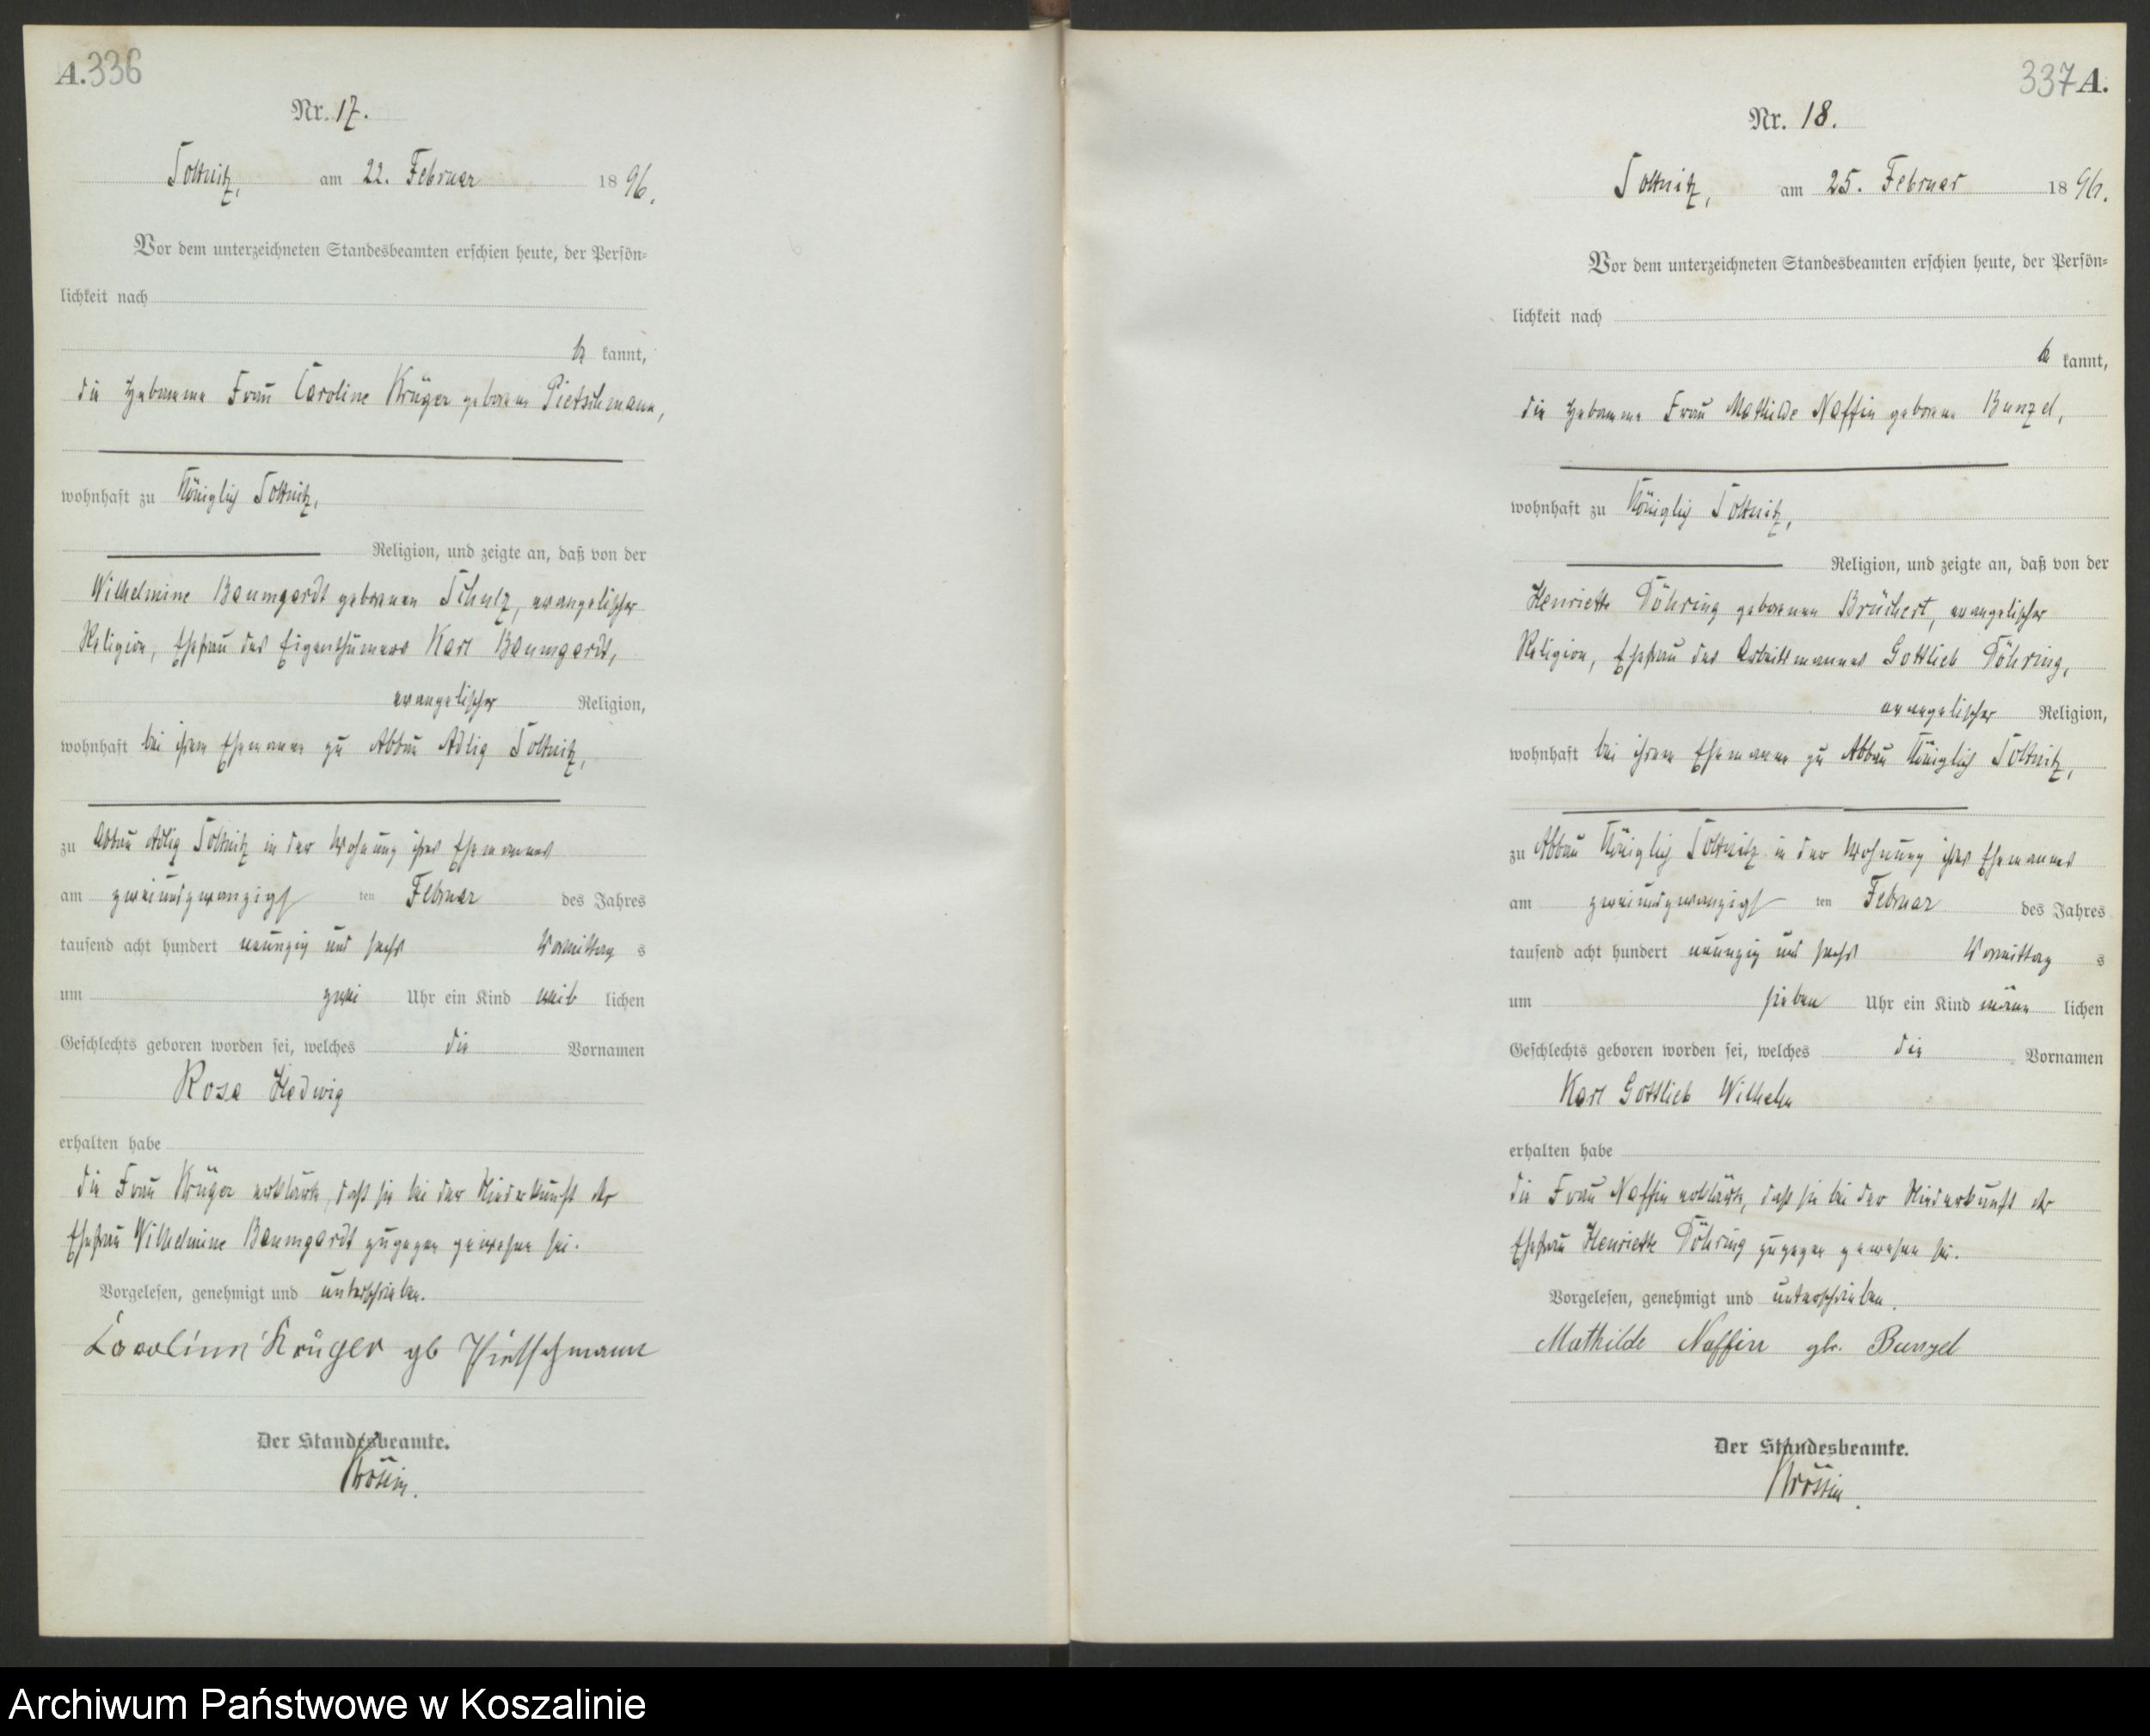 A. 336
Nr. 17.
Soltnitz, am 22. Februar 1896.
Vor dem unterzeichneten Standesbeamten erschien heute, der Persön-
lichkeit nach
be kannt,
die Hebamme Frau Caroline Krüger geborene Pietschmann,
wohnhaft zu Königlich Soltnitz,
Religion, und zeigte an, daß von der
Wilhelmine Baumgardt geborenen Schulz, evangelischer
Religion, Ehefrau des Eigenthümers Karl Baumgardt,
evangelischer Religion,
wohnhaft bei ihrem Ehemanne zu Abbau Adlig Soltnitz,
zu Abbau Adlig Soltnitz in der Wohnung ihres Ehemannes
am zweiundzwanzigsten Februar des Jahres
tausend acht hundert neunzig und sechs Vormittags
um zwei Uhr ein Kind weiblichen
Geschlechts geboren worden sei, welches die Vornamen
Rosa Hedwig
erhalten habe
die Frau Krüger erklärte, daß sie bei der Niederkunft der
Ehefrau Wilhelmine Baumgardt zugegen gewesen sei.
Vorgelesen, genehmigt und unterschrieben.
Caroline Krüger gb Pietschmann
Der Standesbeamte.
337 A.
Nr. 18.
Soltnitz, am 25. Februar 1896.
Vor dem unterzeichneten Standesbeamten erschien heute, der Persön-
lichkeit nach
be kannt,
die Hebamme Frau Mathilde Naffin geborene Bunzel,
wohnhaft zu Königlich Soltnitz,
Religion, und zeigte an, daß von der
Henriette Döhring geborenen Brüchert, evangelischer
Religion, Ehefrau des Arbeitsmannes Gottlieb Döhring,
evangelischer Religion,
wohnhaft bei ihrem Ehemanne zu Abbau Königlich Soltnitz,
zu Abbau Königlich Soltnitz in der Wohnung ihres Ehemannes
am zweiundzwanzigsten Februar des Jahres
tausend acht hundert neunzig und sechs Vormittags
um sieben Uhr ein Kind männlichen
Geschlechts geboren worden sei, welches die Vornamen
Karl Gottlieb Wilhelm
erhalten habe
die Frau Naffin erklärte, daß sie bei der Niederkunft der
Ehefrau Henriette Döhring zugegen gewesen sei.
Vorgelesen, genehmigt und unterschrieben.
Mathilde Naffin gb. Bunzel
Der Standesbeamte.
Archiwum Państwowe w Koszalinie